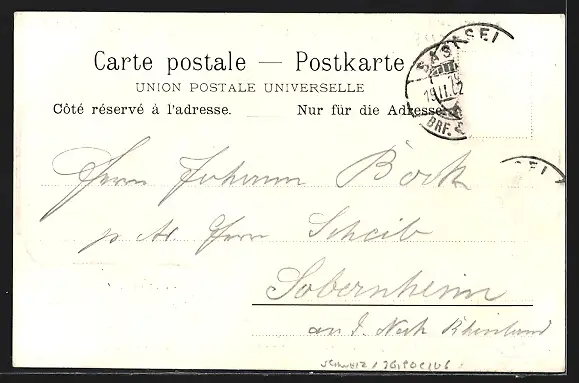 Carte postale — Postkarte
UNION POSTALE UNIVERSELLE
Côté réservé à l'adresse. Nur für die Adresse.
19.II.02
BRF.
Herrn Johann Bock
p. Ad. Herrn Scheib
Sobernheim
an d. Nach Rheinland